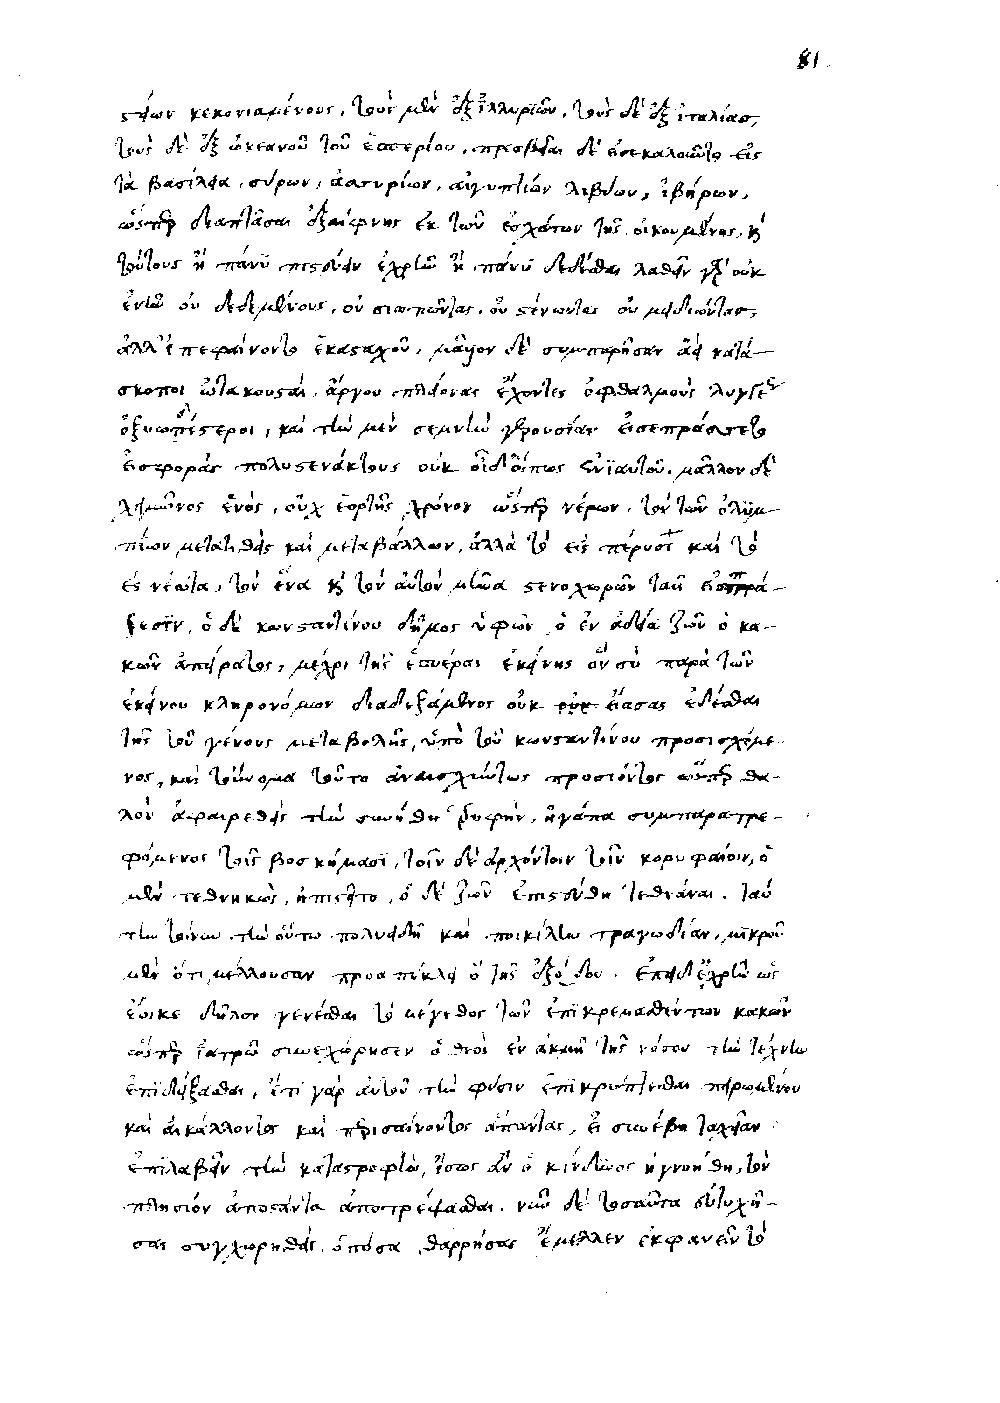 81
στέων κεκονιαμένους, τοὺς μὲν ἐξ ἰλλυριῶν, τοὺς δὲ ἐξ ἰταλίας,
τοὺς δὲ ἐξ ὠκεανοῦ τοῦ ἑσπερίου, πρεσβεῖαι δὲ εἰσεκαλοῦντο εἰς
τὰ βασίλεια, σύρων, ἀσσυρίων, αἰγυπτίων λιβύων, ἰβήρων,
ὥσπερ διαπτᾶσαι ἐξαίφνης ἐκ τῶν ἐσχάτων τῆς οἰκουμένης, καὶ
τούτους ἢ πάνυ πιστεύειν ἐχρῆν ἢ πάνυ δεδιέναι λαθεῖν γὰρ οὐκ
ἐνῆν οὐ δεδεμένους, οὐ σιωπῶντας, οὐ στένοντας οὐ μειδιῶντας,
ἀλλ' ἐπεφαίνοντο ἑκασταχοῦ, μᾶλλον δὲ συμπαρῆσαν ἀεὶ κατά-
σκοποι ὠτακουσταὶ, ἄργου πλείονας ἔχοντες ὀφθαλμοὺς λυγκέως
ὀξυωπέστεροι, καὶ τὴν μὲν σεμνὴν γερουσίαν εἰσεπράττετο
εἰσφορὰς πολυστενάκτους οὐκ ἐνιαυτοῦ, μᾶλλον δὲ
χειμῶνος ἑνός, οὐχ ἑορτῆς χρόνον ὥσπερ νέρων, τὸν τῶν ὀλυμ-
πίων μετατιθεὶς καὶ μεταβάλλων, ἀλλὰ τὸ εἰς πέρυσι καὶ τὸ
ἐς νέωτα, τὸν ἕνα καὶ τὸν αὐτὸν μῆνα στενοχωρῶν ταῖς εἰσπρά-
ξεσιν, ὁ δὲ κωνσταντίνου δῆμος ὑφῶν ὁ ἐν ἀδείᾳ ζῶν ὁ κα-
κῶν ἀπείρατος, μέχρι τῆς ἑσπέραι ἐκείνης οὓς σὺ παρὰ τῶν
ἐκείνου κληρονόμων διαδεξάμενος οὐκ οὐκ εἴασας ἐδέσθαι
τῆς τοῦ γένους μεταβολῆς, ὑπὸ τοῦ κωνσταντίνου προσισχόμε-
νος, καὶ τοὔνομα τοῦτο ἀναισχύντως προσιόντος ὥσπερ θα-
λὸν ἀφαιρεθεὶς τὴν συνήθη τρυφὴν, ἠγάπα συμπαρατρε-
φόμενος τοῖς βοσκήμασι, τοῖν δὲ ἀρχόντοιν τοῖν κορυφαίοιν, ὁ
μὲν τεθνηκὼς, ἠπιστεῖτο, ὁ δὲ ζῶν ἐπιστεύθη τεθνάναι. ταύ
την τοίνυν τὴν οὕτω πολυειδῆ καὶ ποικίλην τραγῳδίαν, μικροῦ
μὲν ὅτι μέλλουσαν προαπήκλει ὁ τῆς ἐξόδου. ἐπειδὲ ἐχρῆν ὡς
ἔοικε δῆλον γενέσθαι τὸ μέγεθος τῶν ἐπικρεμασθέντων κακῶν
ὥσπερ ἰατρῷ συνεχώρησεν ὁ θεὸς ἐν ἀκμῇ τῆς νόσου τὴν τέχνην
ἐπιδείξασθαι, ἔτι γὰρ αὐτοῦ τὴν φύσιν ἐπικρύπτεσθαι πειρωμένου
καὶ αἰκάλλοντος καὶ περισαίνοντος ἅπαντας, εἰ συνέβη ταχεῖαν
ἐπιλαβεῖν τὴν καταστροφὴν, ἴσως ἂν ὁ κίνδυνος ἠγνοήθη, τὸν
πλησίον ἀποστάντα ἀποτρέψασθαι. νῦν δὲ τοσαῦτα εὐτυχῆ-
σαι συγχωρηθεὶς, ὁπόσα θαρρήσας ἔμελλεν ἐκφανεῖν τὸ